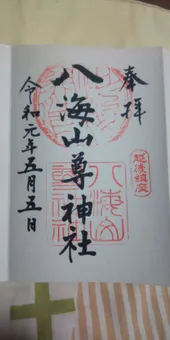 奉拝
八海山尊神社
令和元年五月五日
越後鎮座